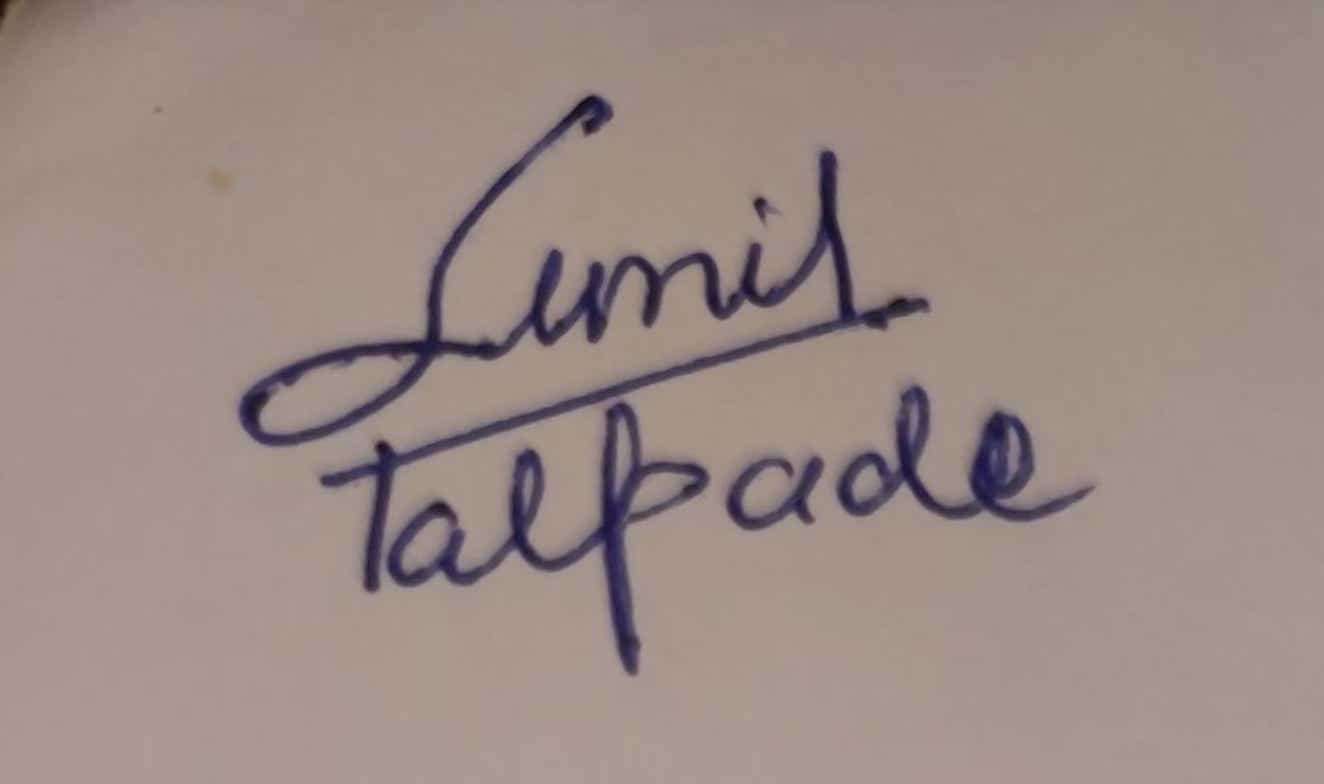 Sunil
Talpade